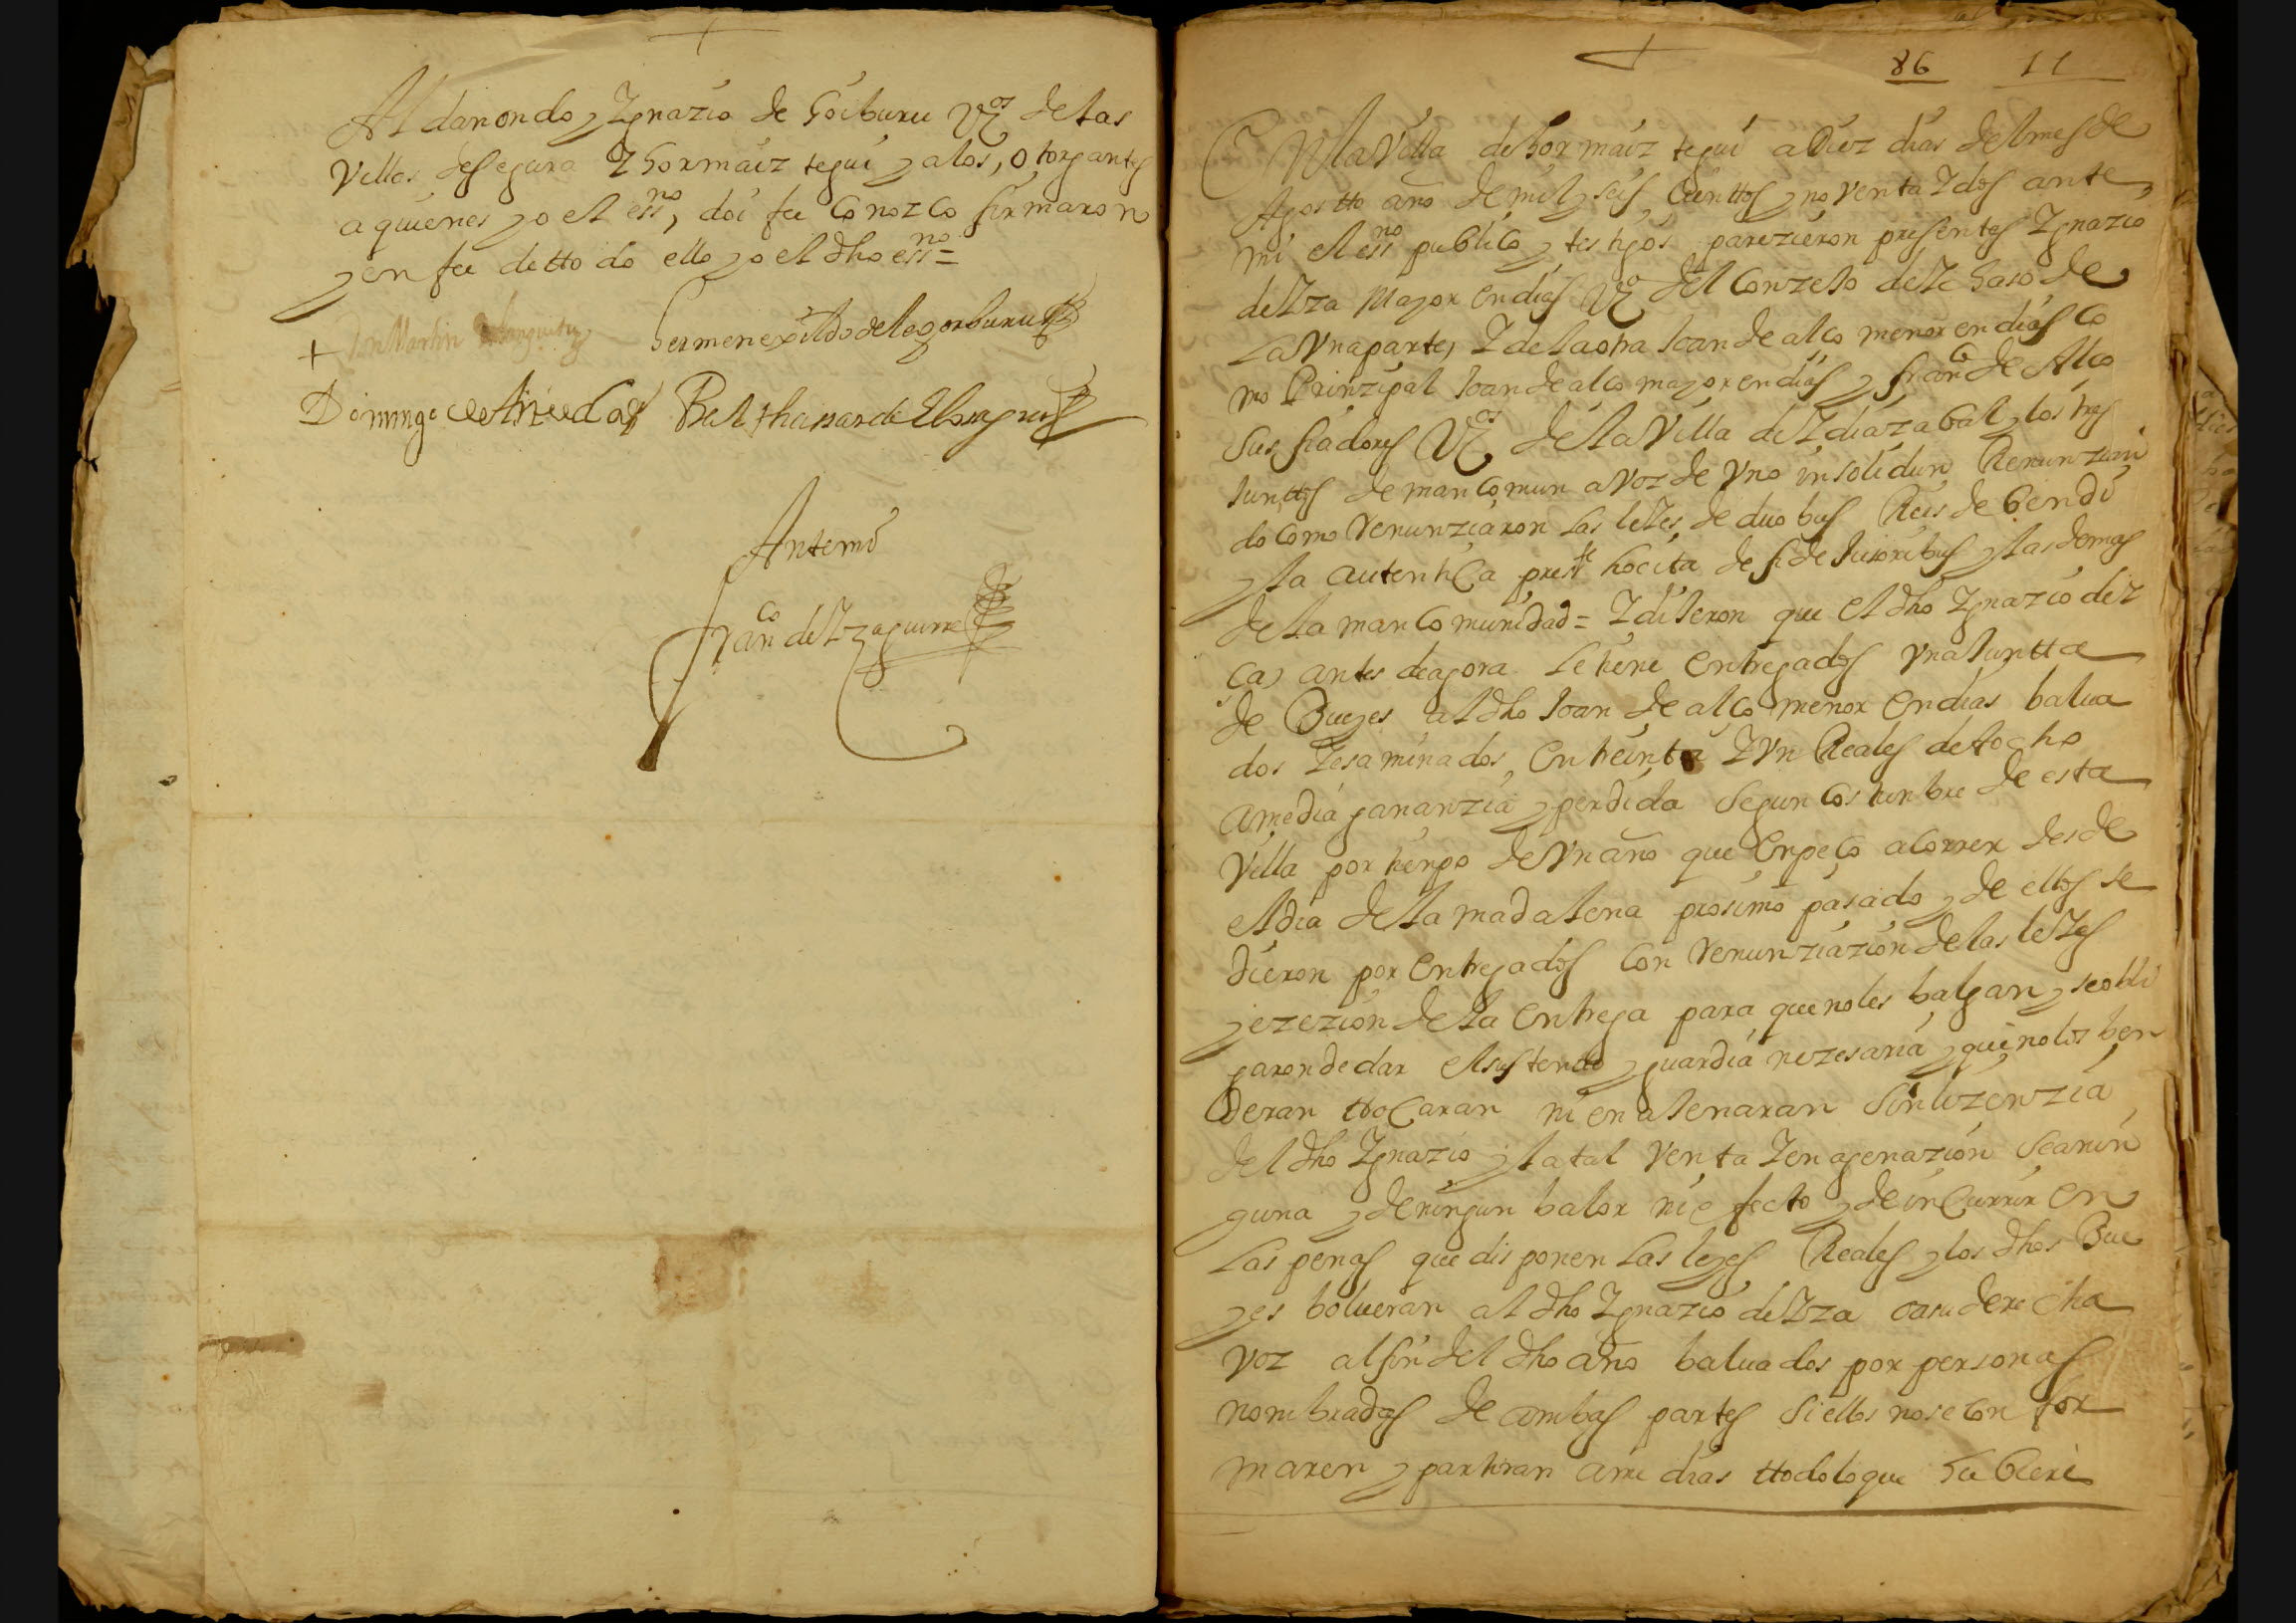 Aldanondo, Ygnazio de Goiburu Vos de las
Villas de Segura Y Gormaiz tegui y a los, otorgantes
a quienes yo el essno, doi fee Conozco firmaron
y en fee de tto do ello yo el dho essno =
+ Don Martin
Hermenexildo de legorburu
Domingo de
Balthasar de
Ante mi
Franco de Yzaguirre
86 11
En la Villa de Gormaiz tegui a Diez dias del mes de
Agostto año de mil y seis Cienttos y noventa Y dos ante
mi el essno publico y testigos parezieron presentes Ygnazio
de Yza Mayor en dias Vo del Conzejo de Ze Gaso de
La Una parte, Y de la otra Joan de alco menor en dias Co
mo Prinzipal Joan de alco mayor en dias y franco de Alco
sus fiadores Vos de la Villa de Ydiazabal y los tres
Junttos de man Comun a voz de Uno in solidun Renunzian
do como renunziaron Las leYes de duo bus Reis de bendi
y la autentica presste hocita de fide Jusoribus y las demas
de la man Comunidad = Y diJeron que el dho Ygnazio de Y
ca, antes de agora Le tiene entregados Una Juntta
de Bueyes al dho Joan de alco menor en dias balua
dos Y esaminados, en treinta Y Un Reales de A ocho
a media gananzia y perdida Segun Costunbre de esta
Villa por tienpo de Un año que enpeço a Correr desde
el dia de la madalena prosimo pasado y de ellos se
dieron por entregados Con renunziazion de las leYes
y ezezion de la entrega para que no les balgan y se obli
garon de dar el sustento y guardia nezesaria y que no los ben
deran trocaran ni enaJenaran Sin lizenzia
del dho Ygnazio y la tal Venta Y enagenazion Sea nin
guna y de ningun balor ni efecto y de inCurrir en
Las penas que disponen Las leyes Reales y los dhos Bue
yes bolueran al dho Ygnazio de Yza o a su derecha
Voz al fin del dho año baluados por personas
nombradas de ambas partes Si ellos no se con for
maren y partiran a me dias ttodo lo que hu biere